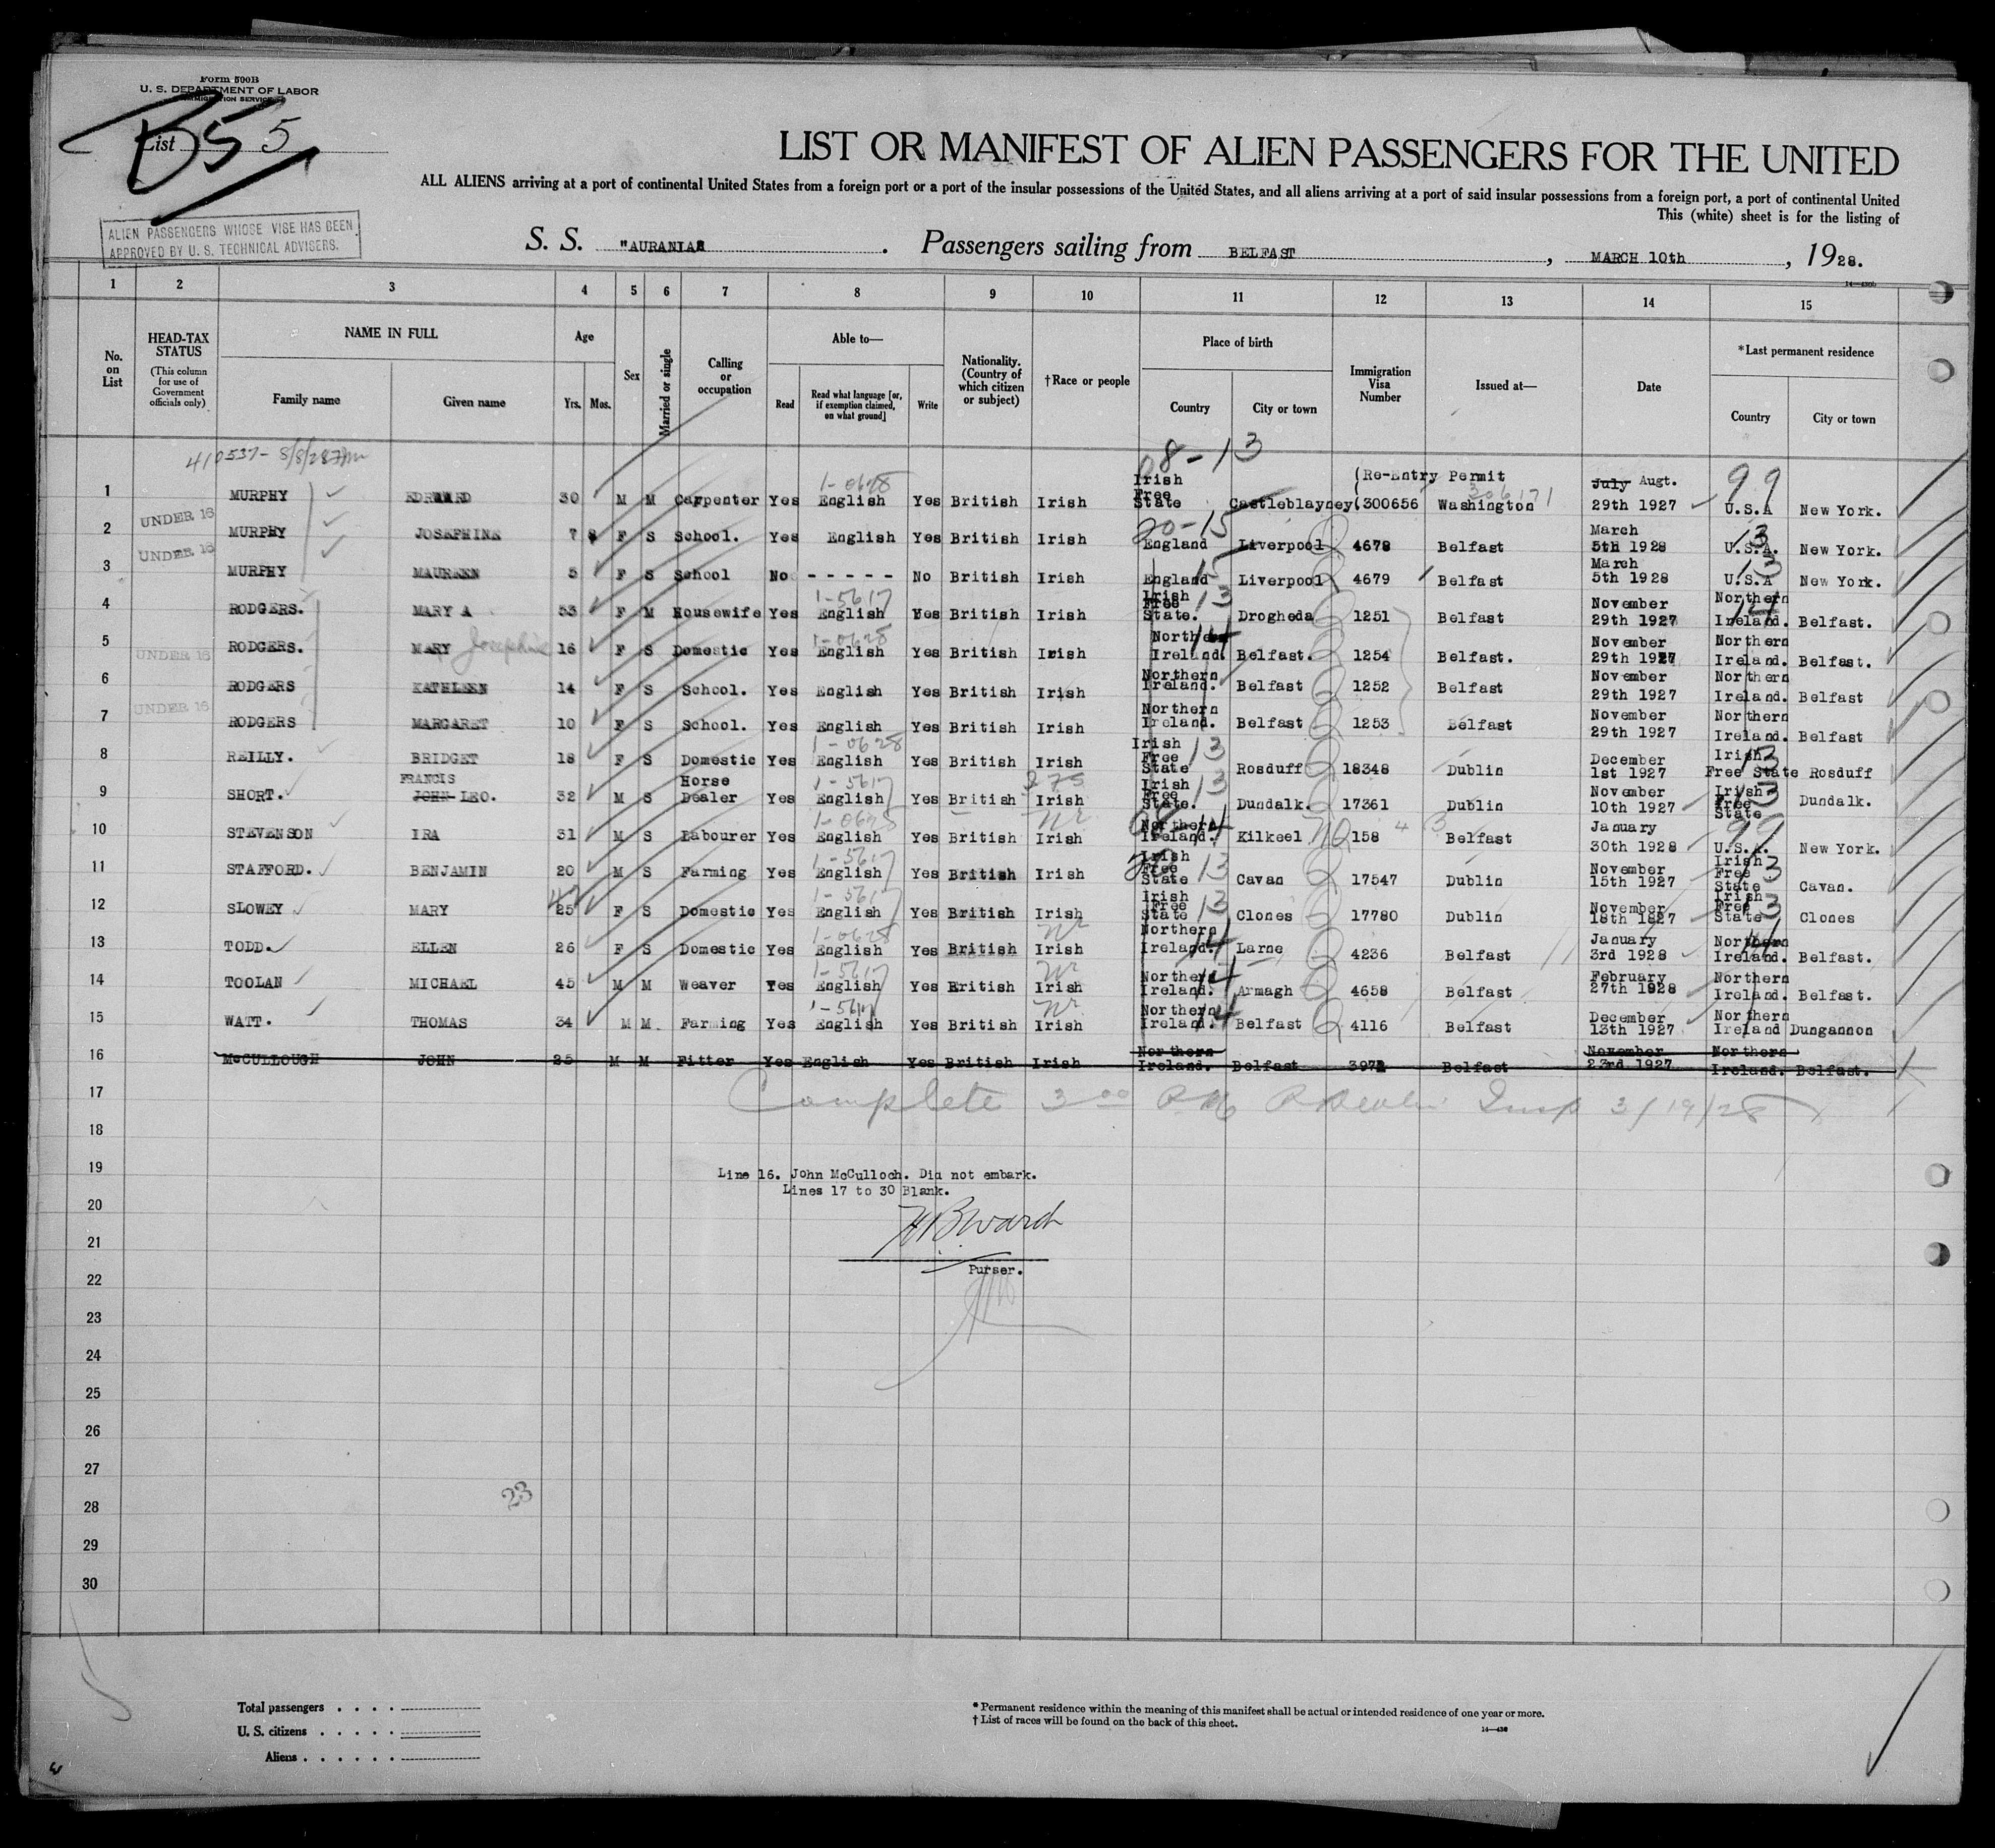 Form 500B
U. S. DEPARTMENT OF LABOR
IMMIGRATION SERVICE
List 5
B55
LIST OR MANIFEST OF ALIEN PASSENGERS FOR THE UNITED
ALL ALIENS arriving at a port of continental United States from a foreign port or a port of the insular possessions of the United States, and all aliens arriving at a port of said insular possessions from a foreign port, a port of continental United
This (white) sheet is for the listing of
ALIEN PASSENGERS WHOSE VISE HAS BEEN
APPROVED BY U. S. TECHNICAL ADVISERS.
S. S. "AURANIA" . Passengers sailing from BELFAST , MARCH 10th , 1928.
1 2 3 4 5 6 7 8 9 10 11 12 13 14 15
No. on List
HEAD-TAX STATUS (This column for use of Government officials only)
NAME IN FULL Family name Given name
Age Yrs. Mos.
Sex
Married or single
Calling or occupation
Able to— Read Read what language [or, if exemption claimed, on what ground] Write
Nationality. (Country of which citizen or subject)
†Race or people
Place of birth Country City or town
Immigration Visa Number
Issued at—
Date
*Last permanent residence Country City or town
410537 - 8/8/28
8-13
1 MURPHY EDWARD 30 M M Carpenter Yes 1-0628 English Yes British Irish Irish Free State Castleblayney (Re-Entry Permit (300656 306171 Washington July Augt. 29th 1927 99 U.S.A New York.
2 UNDER 16 MURPHY JOSEPHINE 7 F S School. Yes English Yes British Irish 20-15 England Liverpool 4678 Belfast March 5th 1928 13 U.S.A. New York.
3 UNDER 16 MURPHY MAUREEN 5 F S School No - - - - - No British Irish 15 England Liverpool 4679 Belfast March 5th 1928 13 U.S.A New York.
4 RODGERS. MARY A 53 F M Housewife Yes 1-5617 English Yes British Irish Irish Free State. 13 Drogheda 1251 Belfast November 29th 1927 Northern Ireland. 14 Belfast.
5 UNDER 16 RODGERS. MARY Josephine 16 F S Domestic Yes 1-0628 English Yes British Irish Northern Ireland. 14 Belfast. 1254 Belfast. November 29th 1927 Northern Ireland. Belfast.
6 RODGERS KATHLEEN 14 F S School. Yes English Yes British Irish Northern Ireland. Belfast 1252 Belfast November 29th 1927 Northern Ireland. Belfast
7 UNDER 16 RODGERS MARGARET 10 F S School. Yes English Yes British Irish Northern Ireland. Belfast 1253 Belfast November 29th 1927 Northern Ireland. Belfast
8 REILLY. BRIDGET 18 F S Domestic Yes 1-0628 English Yes British Irish Irish Free State 13 Rosduff 18348 Dublin December 1st 1927 Irish Free State 13 Rosduff
9 SHORT. FRANCIS JOHN LEO. 32 M S Horse Dealer Yes 1-5617 English Yes British Irish Irish Free State. 13 Dundalk. 17361 Dublin November 10th 1927 Irish Free State 13 Dundalk.
10 STEVENSON IRA 31 M S Labourer Yes 1-0628 English Yes British Irish Northern Ireland. 14 Kilkeel 158 Belfast January 30th 1928 99 U.S.A. New York.
11 STAFFORD. BENJAMIN 20 M S Farming Yes 1-5617 English Yes British Irish Irish Free State 13 Cavan 17547 Dublin November 15th 1927 Irish Free State 13 Cavan.
12 SLOWEY MARY 25 F S Domestic Yes 1-5617 English Yes British Irish Irish Free State 13 Clones 17780 Dublin November 18th 1827 Irish Free State 13 Clones
13 TODD. ELLEN 26 F S Domestic Yes 1-0628 English Yes British Irish Northern Ireland. 14 Larne 4236 Belfast January 3rd 1928 Northern Ireland. 14 Belfast.
14 TOOLAN MICHAEL 45 M M Weaver Yes 1-5617 English Yes British Irish Northern Ireland. 14 Armagh 4658 Belfast February 27th 1928 Northern Ireland. Belfast.
15 WATT. THOMAS 34 M M. Farming Yes 1-5617 English Yes British Irish Northern Ireland. 14 Belfast 4116 Belfast December 13th 1927 Northern Ireland Dungannon
16 McCULLOUGH JOHN 25 M M Fitter Yes English Yes British Irish Northern Ireland. Belfast 3972 Belfast November 23rd 1927 Northern Ireland. Belfast.
17 Complete 3 00 PM Insp 3/19/28
18
19
Line 16. John McCulloch. Did not embark.
Lines 17 to 30 Blank.
20
21
Purser.
22
23
24
25
26
27
23
28
29
30
Total passengers . . . .
U. S. citizens . . . . .
Aliens . . . . . .
* Permanent residence within the meaning of this manifest shall be actual or intended residence of one year or more.
† List of races will be found on the back of this sheet.